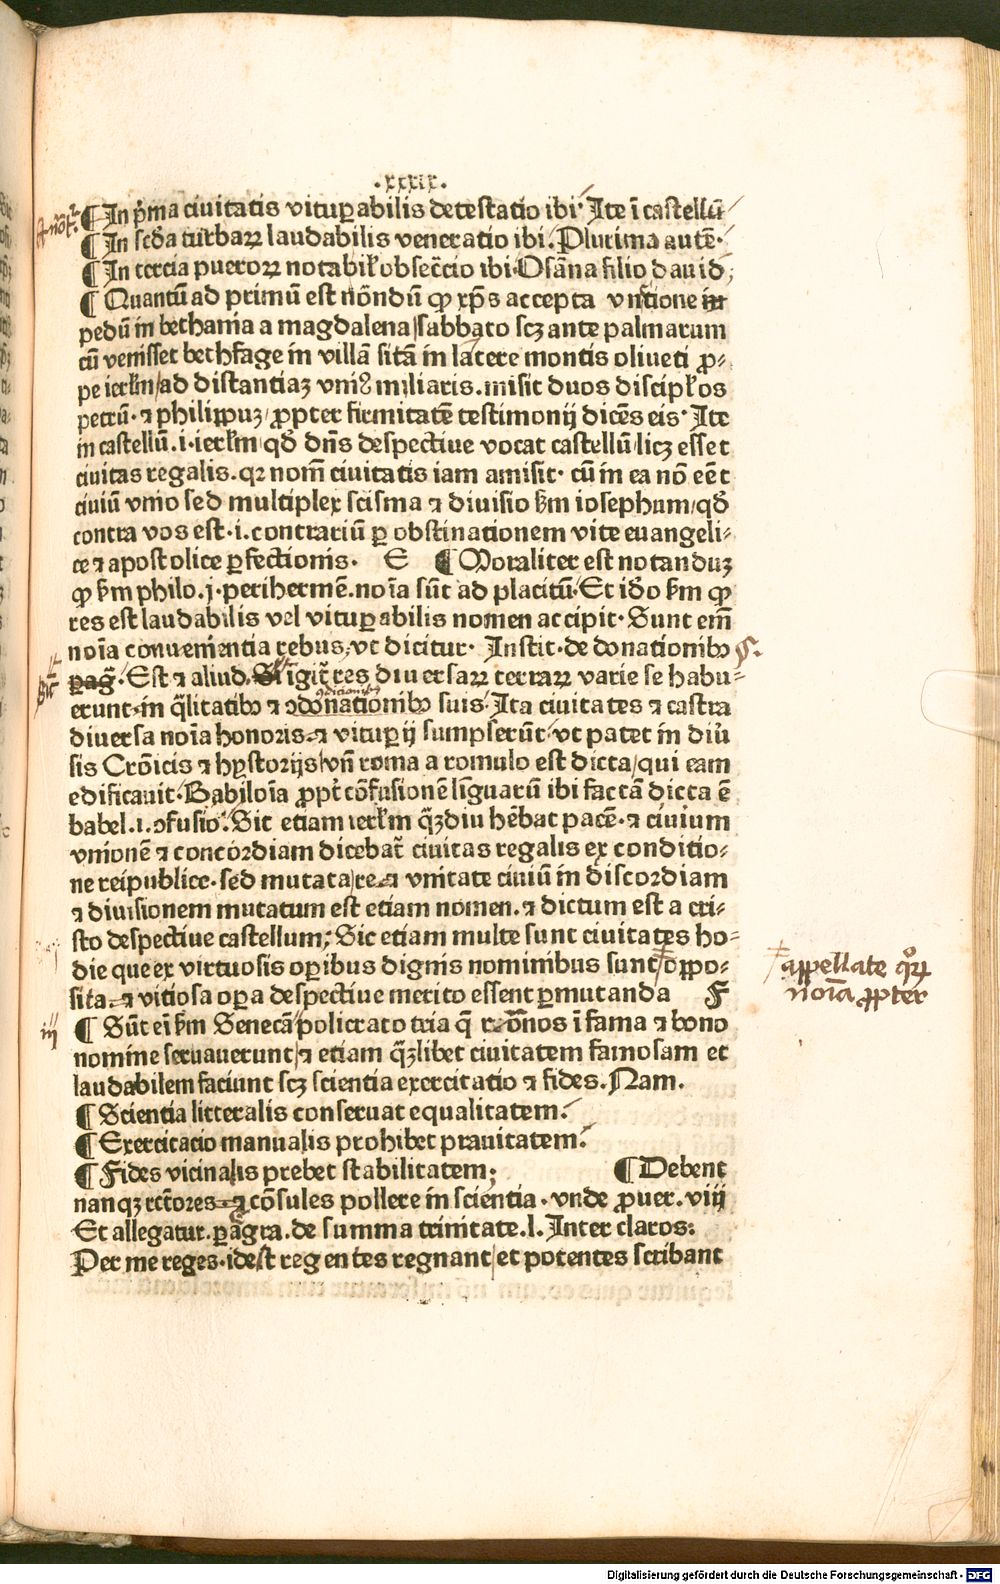 .xxxix.
¶ In p̄ma ciuitatis vituꝑabilis detestatio ibi· Ite ī castellū
Annot̄.
¶ In scd̄a turbaꝝ laudabilis veneratio ibi. Plurima autē·
¶ In tercia pueroꝝ notabil̵ obseq̄cio ibi·Osāna filio dauid;
¶ Quantū ad primū est nōndū ꝙ xp̄s accepta vnctione in
pedū in bethania a magdalena/sabbato scꝫ ante palmarum
cū venisset bethfage in villā sitā in latere montis oliueti ꝓ-
pe ierl̵m/ad distantiaꝫ vniꝰ miliaris. misit duos discipl̵os
petrū· ⁊ philippuꝫ/ ꝓpter firmitatē testimonij dicēs eis· Ite
in castellū. i· ierl̵m/qd̄ dn̄s despectiue vocat castellū/licꝫ esset
ciuitas regalis. qꝛ nom̄ ciuitatis iam amisit· cū in ea nō eēt
ciuiū vnio sed multiplex scisma ⁊ diuisio ẜm iosephum/qd̄
contra vos est· i. contrariū ꝑ obstinationem vite euangeli-
ce ⁊ apostolice ꝑfectionis. E ¶ Moraliter est notanduꝫ
ꝙ ẜm philo. j. perihermē. noīa sūt ad placitū· Et id̵o ẜm ꝙ
res est laudabilis vel vituꝑabilis nomen accipit· Sunt em̄
noīa conuenientia rebus, vt dicitur· Instit· de donationibꝰ §.
paḡ· Est ⁊ aliud. Sigit̄ res diuersaꝝ terraꝝ varie se habu-
Sic
erunt in q̄litatibꝰ ⁊ ꝯdonationibꝰ suis· Ita ciuitates ⁊ castra
ꝯdicionibus
diuersa noīa honoris ⁊ vituꝑij sumpserūt/ vt patet in diu̾
sis Crōicis ⁊ hystorijs/vn̄ roma a romulo est dicta/qui eam
edificauit· Babiloīa ꝓpt̄ cōfusionē līguarū ibi factā dicta ē
babel. i. ꝯfusio· Sic etiam ierl̵m qꝫdiu hēbat pacē· ⁊ ciuium
vnionē ⁊ concordiam dicebat̄ ciuitas regalis ex conditio-
ne reipublice· sed mutata re ⁊ vnitate ciuiū in discordiam
⁊ diuisionem mutatum est etiam nomen. ⁊ dictum est a cri-
sto despectiue castellum; Sic etiam multe sunt ciuitates ho-
die que ex virtuosis oꝑibus dignis nominibus sunt/ oppo-
appellate qr̄
noīa ꝓpter
sita ⁊ vitiosa oꝑa despectiue merito essent ꝑmutanda F
iij
¶ Sūt ei̅ ẜm Senecā policrato tria q̄ rōnos ī fama ⁊ bono
nomine seruauerunt/⁊ etiam qꝫlibet ciuitatem famosam et
laudabilem faciunt scꝫ scientia exercitatio ⁊ fides. Nam.
¶ Scientia litteralis conseruat equalitatem.
¶ Exercitacio manualis prohibet prauitatem.
¶ Fides vicinalis prebet stabilitatem; ¶ Debent
nanqꝫ rectores ⁊ cōsules pollere in scientia· vnde ꝓuer. viij
Et allegatur. ꝑagra. de summa trinitate. l. Inter claros:
Per me reges· idest regentes regnant/et potentes scribant
Digitalisierung gefördert durch die Deutsche Forschungsgemeinschaft - DFG